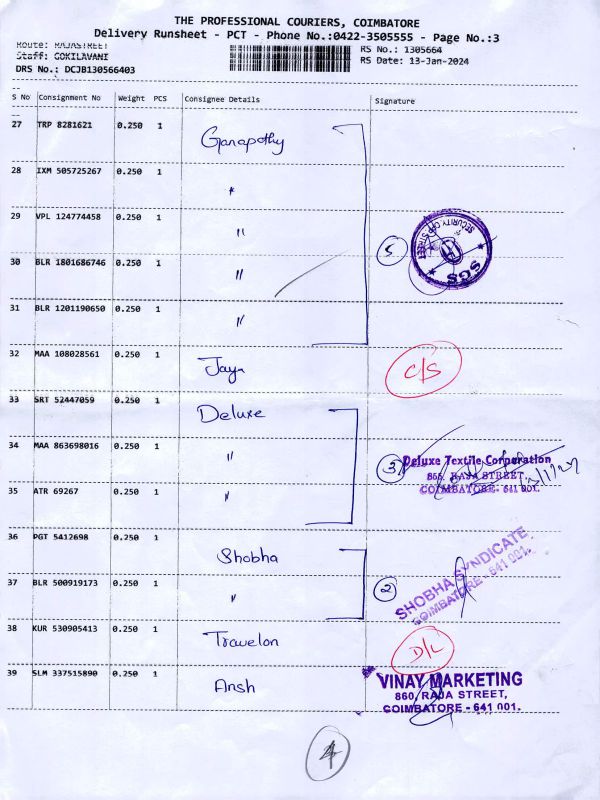 THE PROFESSIONAL COURIERS, COIMBATORE
Delivery Runsheet - PCT - Phone No.:0422-3505555 - Page No.:3
Route: RAJASTREET
RS No.: 1305664
Staff: GOKILAVANI
RS Date: 13-Jan-2024
DRS No.: DCJB130566403
S No Consignment No Weight PCS Consignee Details Signature
27 TRP 8281621 0.250 1 Ganapathy
28 IXM 505725267 0.250 1 "
29 VPL 124774458 0.250 1 "
5
SECURITY OPP STREET
SGS
30 BLR 1801686746 0.250 1 "
31 BLR 1201190650 0.250 1 "
32 MAA 108028561 0.250 1 Jaya C/S
33 SRT 52447059 0.250 1 Deluxe
34 MAA 863698016 0.250 1 "
3 Deluxe Textile Corporation
866, RAJA STREET,
COIMBATORE- 641 001.
35 ATR 69267 0.250 1 "
36 PGT 5412698 0.250 1 Shobha
SHOBHA SYNDICATE
COIMBATORE - 641 001.
37 BLR 500919173 0.250 1 " 2
38 KUR 530905413 0.250 1 Travelon D/L
39 SLM 337515890 0.250 1 Ansh
VINAY MARKETING
860, RAJA STREET,
COIMBATORE - 641 001.
4